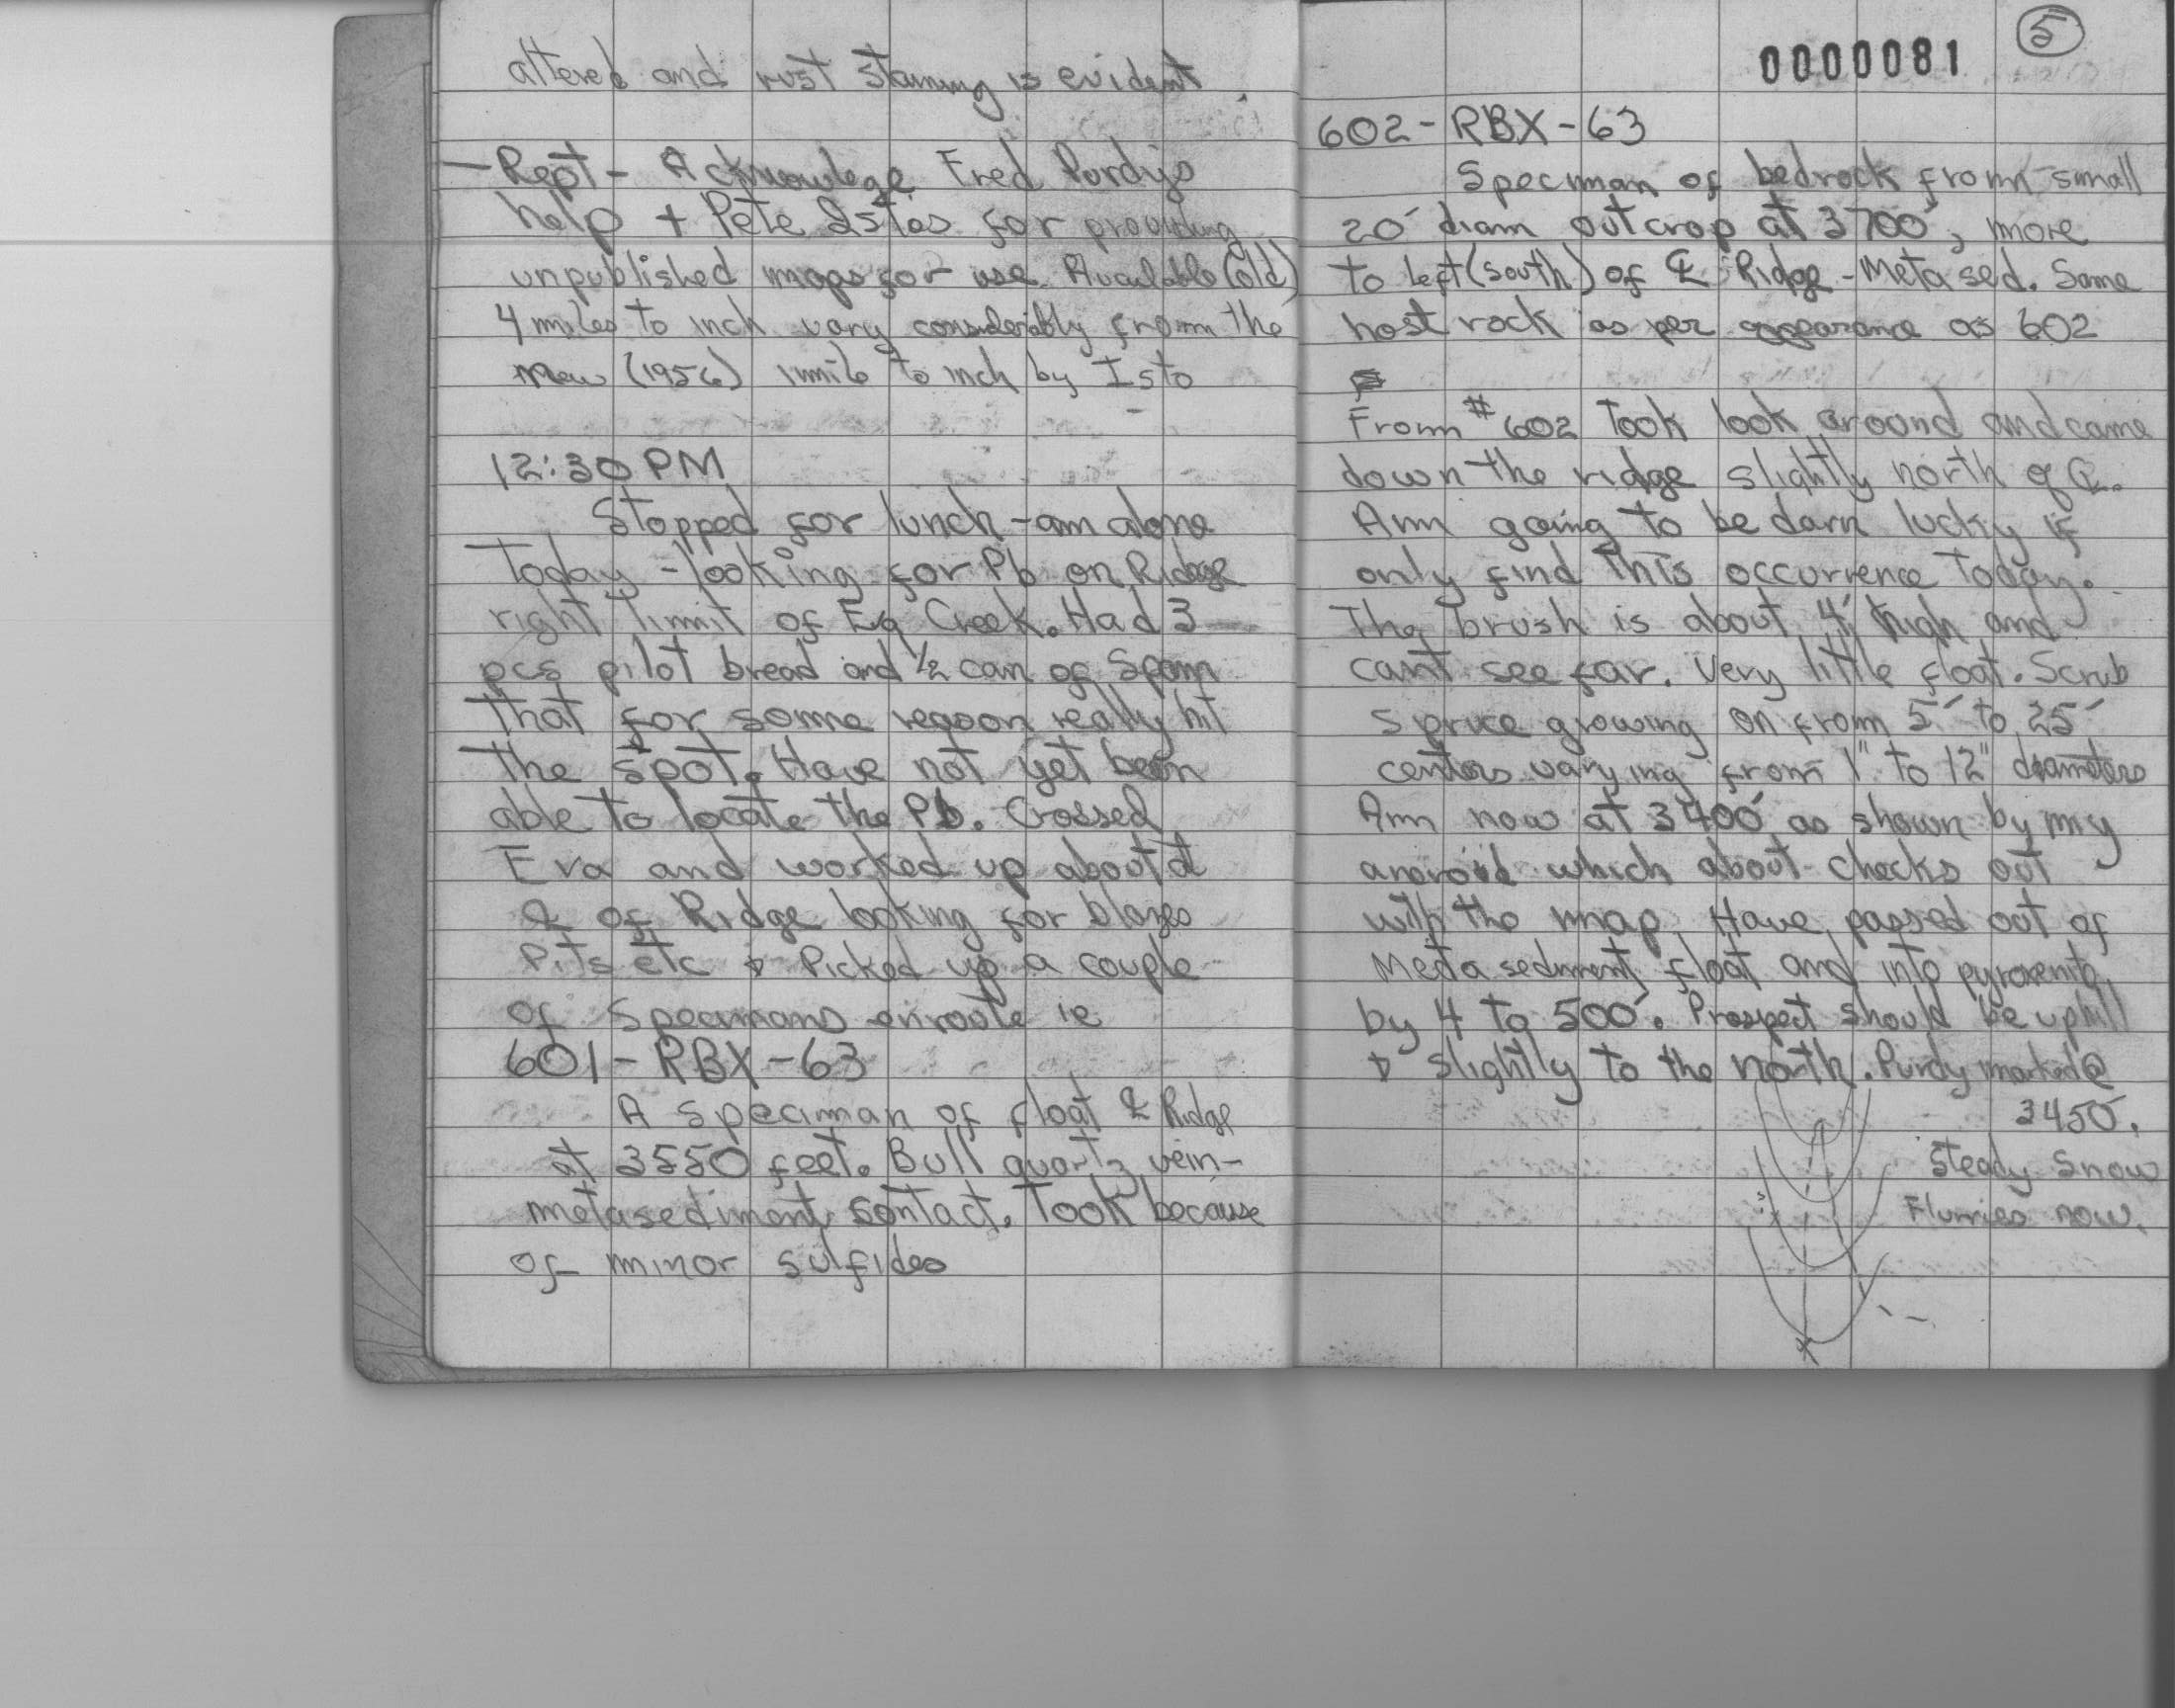 altered and rust staining is evident.
- Rept - Acknowlege Fred Purdy's
help + Pete Istos for providing
unpublished maps for use. Available (old)
4 miles to inch vary considerably from the
new (1956) 1 mile to inch by Isto
12:30 PM
Stopped for lunch - am alone
Today - looking for Pb on Ridge
right limit of Eg Creek. Had 3
pcs pilot bread and 1/2 can of Spam
that for some reason really hit
the spot. Have not yet been
able to locate the Pb. Crossed
Eva and worked up about
℄ of Ridge looking for blazes
Pits etc & Picked up a couple
of Specimans enroute ie
601-RBX-63
A speciman of float ℄ Ridge
at 3550 feet. Bull quartz vein-
metasediment contact. Took because
of minor sulfides
0000081
5
602-RBX-63
Speciman of bedrock from small
20' diam outcrop at 3700', more
to left (south) of ℄ Ridge - Meta sed. Same
host rock as per appearance as 602
From #602 Took look around and came
down the ridge slightly north of ℄.
Am going to be darn lucky if
only find this occurrence today.
The brush is about 4' high and
cant see far. Very little float. Scrub
spruce growing on from 5' to 25'
centers varying from 1" to 12" diameters
Am now at 3400' as shown by my
aneroid which about checks out
with the map. Have passed out of
Meta sediment float and into pyroxenite
by 4 to 500'. Prospect should be uphill
& slightly to the north. Purdy marked @
3450.
Steady snow
Flurries now.